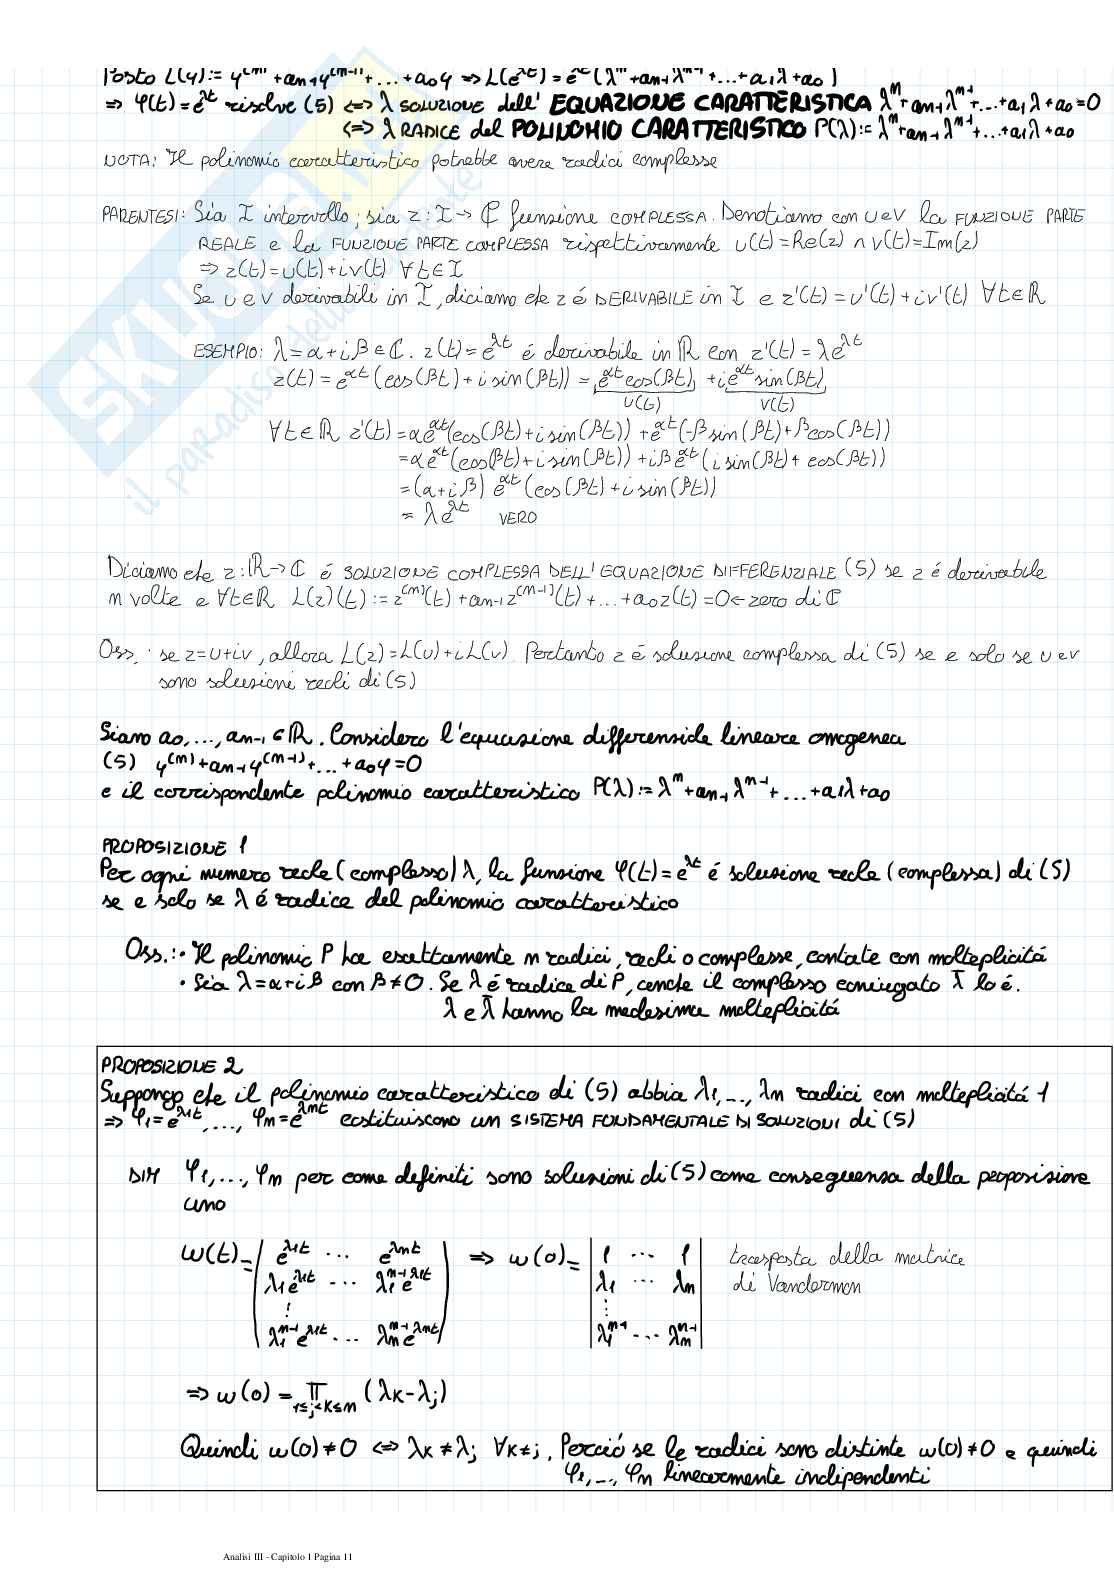 Posto L(y):= y^(n) + an-1 y^(n-1) + ... + a0y => L(e^λt) = e^λt (λ^n + an-1 λ^n-1 + ... + a1λ + a0)
=> φ(t) = e^λt risolve (5) <=> λ SOLUZIONE dell' EQUAZIONE CARATTERISTICA λ^n + an-1 λ^n-1 + ... + a1 λ + a0 = 0
<=> λ RADICE del POLINOMIO CARATTERISTICO P(λ):= λ^n + an-1 λ^n-1 + ... + a1λ + a0
NOTA: Il polinomio caratteristico potrebbe avere radici complesse
PARENTESI: Sia I intervallo; sia z: I -> ℂ funzione COMPLESSA. Denotiamo con u e v la FUNZIONE PARTE
REALE e la FUNZIONE PARTE COMPLESSA rispettivamente u(t) = Re(z) ∧ v(t) = Im(z)
=> z(t) = u(t) + iv(t) ∀t∈I
Se u e v derivabili in I, diciamo che z é DERIVABILE in I e z'(t) = u'(t) + iv'(t) ∀t∈ℝ
ESEMPIO: λ = α + iβ ∈ ℂ. z(t) = e^λt é derivabile in ℝ con z'(t) = λe^λt
z(t) = e^αt (cos(βt) + i sin(βt)) = e^αt cos(βt) + i e^αt sin(βt)
u(t) v(t)
∀t∈ℝ z'(t) = αe^αt (cos(βt) + i sin(βt)) + e^αt (-β sin(βt) + βcos(βt))
= αe^αt (cos(βt) + i sin(βt)) + iβ e^αt (i sin(βt) + cos(βt))
= (α + iβ) e^αt (cos(βt) + i sin(βt))
= λe^λt VERO
Diciamo che z: ℝ -> ℂ é SOLUZIONE COMPLESSA DELL'EQUAZIONE DIFFERENZIALE (5) se z é derivabile
n volte e ∀t∈ℝ L(z)(t) := z^(n)(t) + an-1 z^(n-1)(t) + ... + a0z(t) = 0 <- zero di ℂ
Oss. · se z = u + iv, allora L(z) = L(u) + iL(v). Pertanto z é soluzione complessa di (5) se e solo se u e v
sono soluzioni reali di (5)
Siano a0, ..., an-1 ∈ ℝ. Considero l'equazione differenziale lineare omogenea
(5) y^(n) + an-1 y^(n-1) + ... + a0y = 0
e il corrispondente polinomio caratteristico P(λ):= λ^n + an-1 λ^n-1 + ... + a1λ + a0
PROPOSIZIONE 1
Per ogni numero reale (complesso) λ, la funzione φ(t) = e^λt é soluzione reale (complessa) di (5)
se e solo se λ é radice del polinomio caratteristico
Oss.: · Il polinomio P ha esattamente n radici, reali o complesse, contate con molteplicitá
· Sia λ = α + iβ con β ≠ 0. Se λ é radice di P, anche il complesso coniugato λ̄ lo é.
λ e λ̄ hanno la medesima molteplicitá
PROPOSIZIONE 2
Suppongo che il polinomio caratteristico di (5) abbia λ1, ..., λn radici con molteplicitá 1
=> φ1 = e^λ1t, ..., φn = e^λnt costituiscono un SISTEMA FONDAMENTALE DI SOLUZIONI di (5)
DIM φ1, ..., φn per come definiti sono soluzioni di (5) come conseguenza della proposizione
uno
w(t) = | e^λ1t ... e^λnt | => w(0) = | 1 ... 1 | trasposta della matrice
| λ1e^λ1t ... λ1^n-1 e^λ1t | | λ1 ... λn | di Vandermon
⋮ ⋮
| λ1^n-1 e^λ1t ... λn^n-1 e^λnt | | λ1^n-1 ... λn^n-1 |
=> w(0) = Π 1≤j<k≤n (λk - λj)
Quindi w(0) ≠ 0 <=> λk ≠ λj ∀k≠j. Perció se le radici sono distinte w(0) ≠ 0 e quindi
φ1, ..., φn linearmente indipendenti
Analisi III - Capitolo 1 Pagina 11